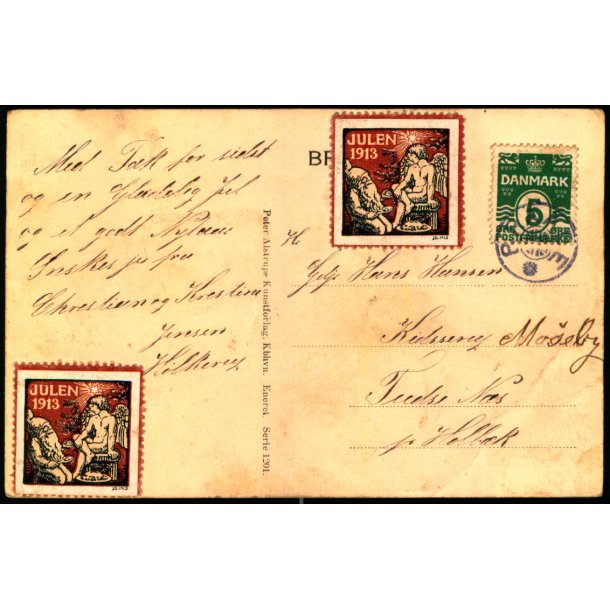 Med Tak for sidst
og en Glædelig Jul
og et godt Nytaar
Ønskes je fra
Christian og Kristine
Jensen
JULEN
1913
Peter Alstrups Kunstforlag. Kbhvn. Eneret. Serie 1201.
BR
JULEN
1913
DANMARK
5
POSTFRIM
H
Hans Hansen
Møseby
Tudse Næs
pr Holbæk